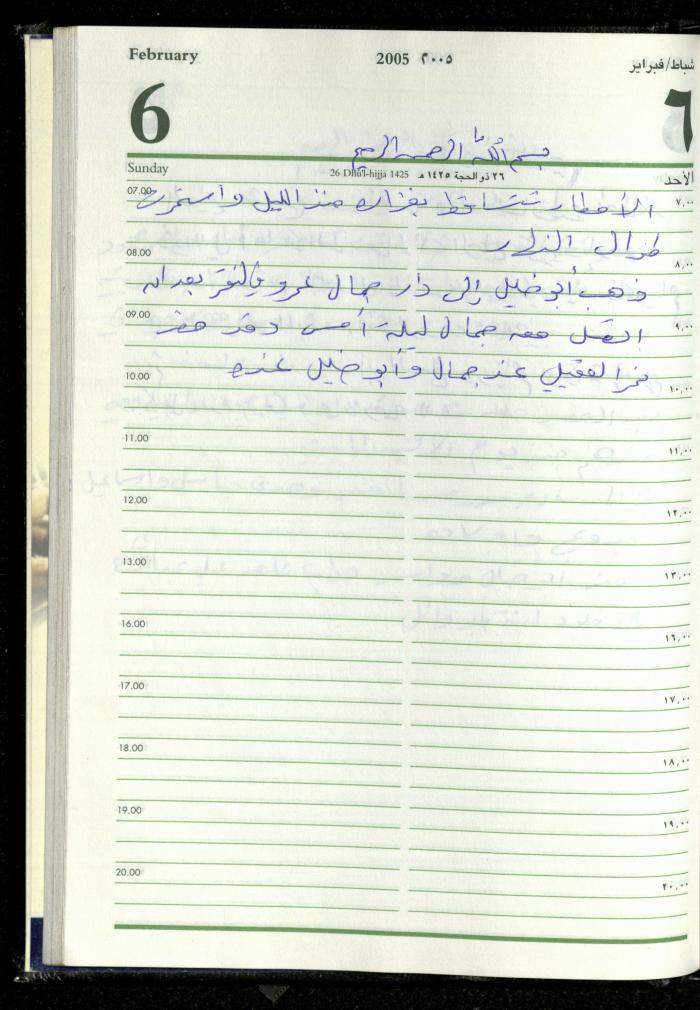 February 2005 ٢٠٠٥ شباط/فبراير
6 ٦
بسم الله الرحمن الرحيم
Sunday 26 Dhu'l-hijja 1425 ٢٦ ذو الحجة ١٤٢٥ هـ الأحد
07.00 ٧,٠٠
الأمطار تتساقط بغزارة منذ الليل واستمرت
طوال النهار
08.00 ٨,٠٠
ذهب أبو خليل إلى دار جمال عمرو بعد ان
09.00 ٩,٠٠
اتصل معه جمال ليلة أمس وقد حضر
عند جمال وأبو خليل عنده
10.00 ١٠,٠٠
11.00 ١١,٠٠
12.00 ١٢,٠٠
13.00 ١٣,٠٠
16.00 ١٦,٠٠
17.00 ١٧,٠٠
18.00 ١٨,٠٠
19.00 ١٩,٠٠
20.00 ٢٠,٠٠